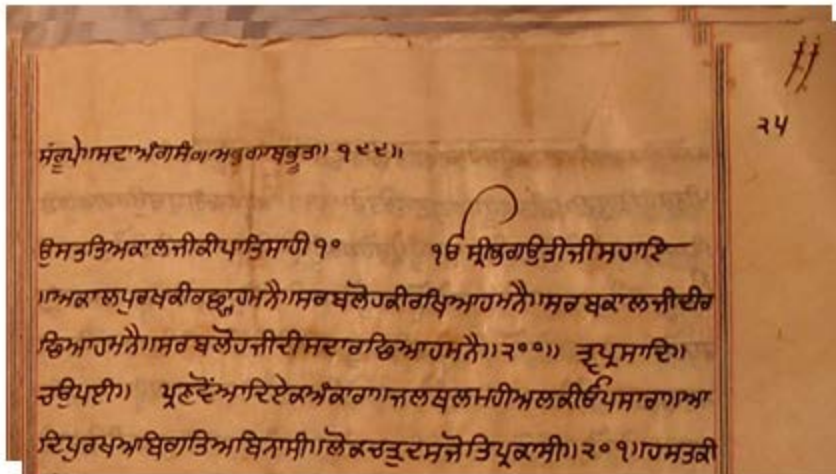 ੨੫
ਸਰੂਪੇ॥ਸਦਾਅੰਗਸੰਗੇਅਭੰਗਬਿਭੂਤ॥੧੯੯॥
ਉਸਤਤਿਅਕਾਲਜੀਕੀਪਾਤਿਸਾਹੀ੧੦ ੴ ਸ੍ਰੀਭਗਉਤੀਜੀਸਹਾਇ
॥ਅਕਾਲਪੁਰਖਕੀਰਛ੍ਯਾਹਮਨੈ॥ਸਰਬਲੋਹਕੀਰਖਿਆਹਮਨੈ॥ਸਰਬਕਾਲਜੀਦੀਰ
ਛਿਆਹਮਨੈ॥ਸਰਬਲੋਹਜੀਦੀਸਦਾਰਛਿਆਹਮਨੈ॥੨੦੦॥ ਤ੍ਵਪ੍ਰਸਾਦਿ॥
ਚਉਪਈ॥ ਪ੍ਰਣਵੋਂਆਦਿਏਕਅੰਕਾਰਾ॥ਜਲਥਲਮਹੀਅਲਕੀਓਪਸਾਰਾ॥ਆ
ਦਿਪੁਰਖਆਬਿਗਤਿਅਬਿਨਾਸੀ॥ਲੋਕਚਤ੍ਰੁਦਸਜੋਤਿਪ੍ਰਕਾਸੀ॥੨੦੧॥ਹਸਤਕੀ